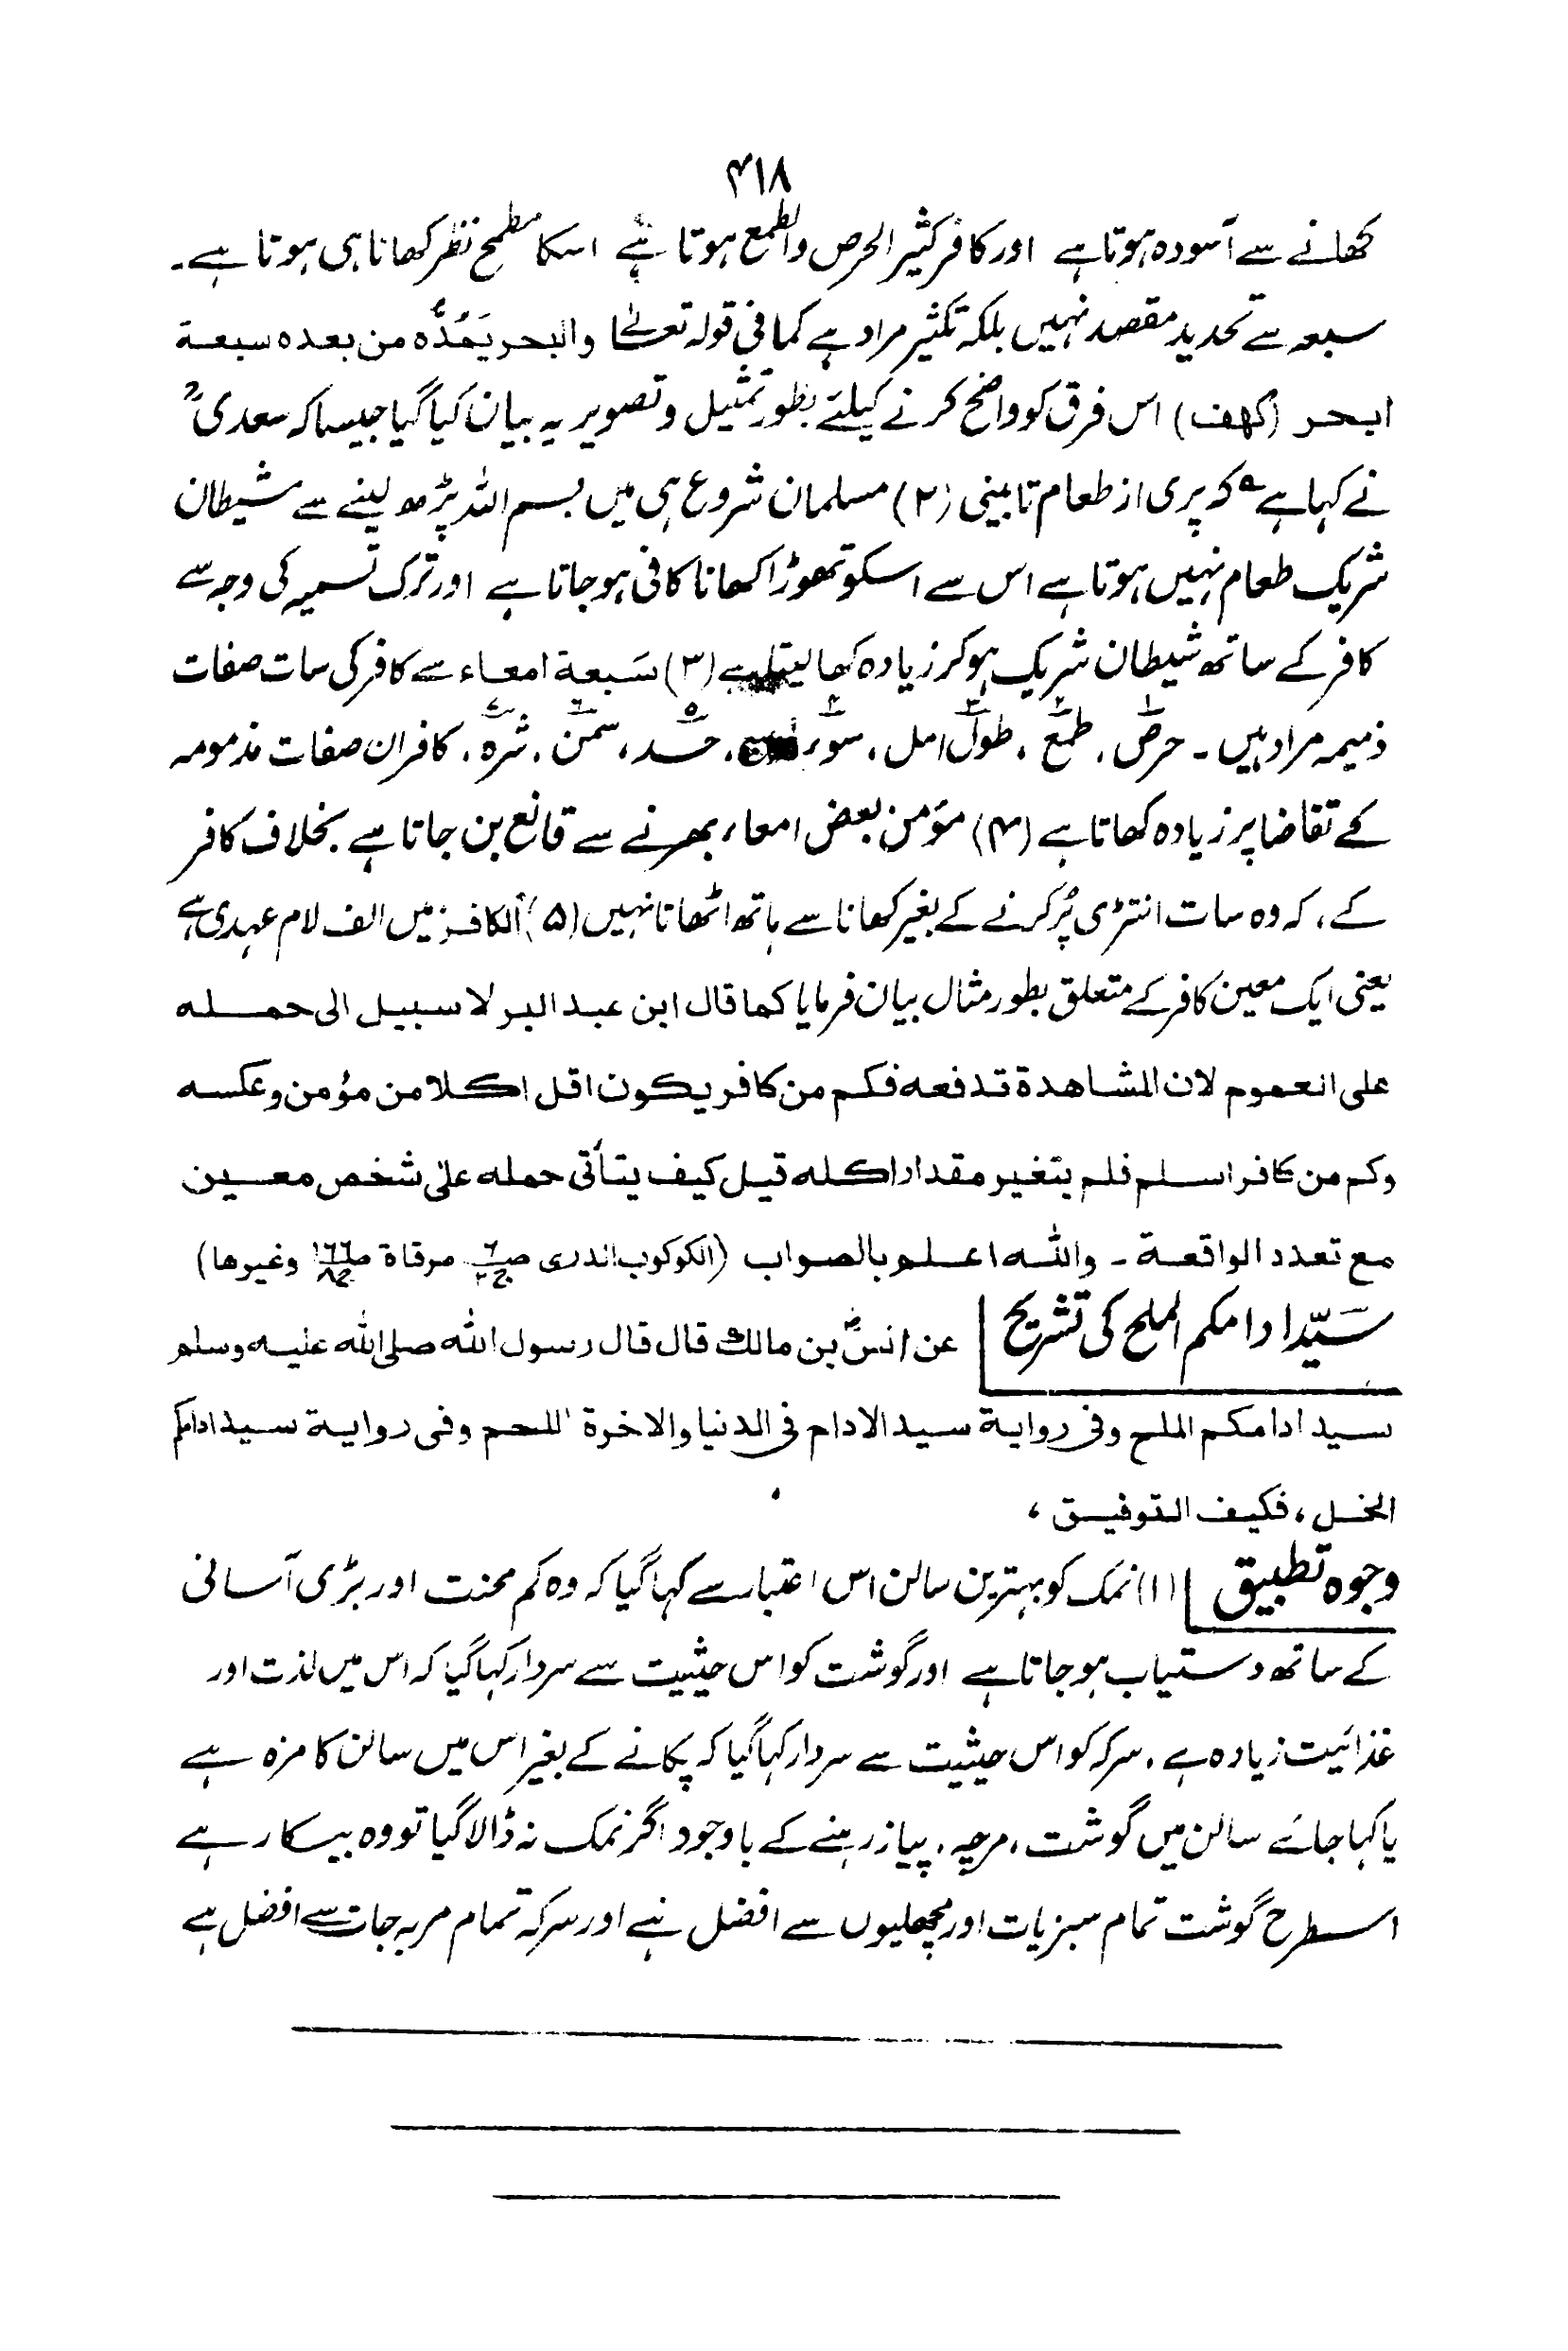 ۴۱۸
کھانے سے آسودہ ہوتا ہے اور کافر کثیر الحرص والطمع ہوتا ہے اسکا مطمح نظر کھانا ہی ہوتا ہے۔
سبعہ سے تحدید مقصد نہیں بلکہ تکثیر مراد ہے کما فی قولہ تعالیٰ والبحر یَمُدُّه من بعده سبعة
ابحر (کهف) اس فرق کو واضح کرنے کیلئے بطور تمثیل و تصویر یہ بیان کیا گیا جیسا کہ سعدیؒ
نے کہا ہے ؎ کہ پری از طعام تا بینی (۲) مسلمان شروع ہی میں بسم اللہ پڑھ لینے سے شیطان
شریک طعام نہیں ہوتا ہے اس سے اسکو تھوڑا کھانا کافی ہو جاتا ہے اور ترک تسمیہ کی وجہ سے
کافر کے ساتھ شیطان شریک ہو کر زیادہ کھا لیتا ہے (۳) سَبعة امعاء سے کافر کی سات صفات
ذمیمہ مراد ہیں ۔ حرص۱، طمع۲، طول۳ امل، سوء۴، حسد۵، سمن۶، شرہ۷، کافر ان صفات مذمومہ
کے تقاضا پر زیادہ کھاتا ہے (۴) مؤمن بعض امعاء بھرنے سے قانع بن جاتا ہے بخلاف کافر
کے، کہ وہ سات انتڑی پُر کرنے کے بغیر کھانا سے ہاتھ اٹھاتا نہیں (۵) الکافر میں الف لام عہدی ہے
یعنی ایک معین کافر کے متعلق بطور مثال بیان فرمایا کما قال ابن عبد البر لا سبیل الی حمله
علی العموم لان المشاهدة تدفعه فکم من کافر یکون اقل اکلا من مؤمن وعکسه
وکم من کافر اسلم فلم یتغیر مقدار اکله قیل کیف یتأتی حمله علیٰ شخص معین
مع تعدد الواقعة ۔ والله اعلم بالصواب (الکوکوب الدری ص۶ ج۲ مرقاة ص۱۶۶ ج۸ وغیرها)
سَیّد ادامکم الملح کی تشریح عن انسؓ بن مالك قال قال رسول الله صلی الله علیه وسلم
سید ادامکم الملح وفی روایة سید الادام فی الدنیا والاخرة اللحم وفی روایة سید ادامکم
الخل، فکیف التوفیق،
وجوہ تطبیق (۱) نمک کو بہترین سالن اس اعتبار سے کہا گیا کہ وہ کم محنت اور بڑی آسانی
کے ساتھ دستیاب ہو جاتا ہے اور گوشت کو اس حیثیت سے سردار کہا گیا کہ اس میں لذت اور
غذائیت زیادہ ہے، سرکہ کو اس حیثیت سے سردار کہا گیا کہ پکانے کے بغیر اس میں سالن کا مزہ ہے
یا کہا جائے سالن میں گوشت، مرچہ، پیاز رہنے کے باوجود اگر نمک نہ ڈالا گیا تو وہ بیکار ہے
اسطرح گوشت تمام سبزیات اور مچھلیوں سے افضل ہے اور سرکہ تمام مربہ جات سے افضل ہے